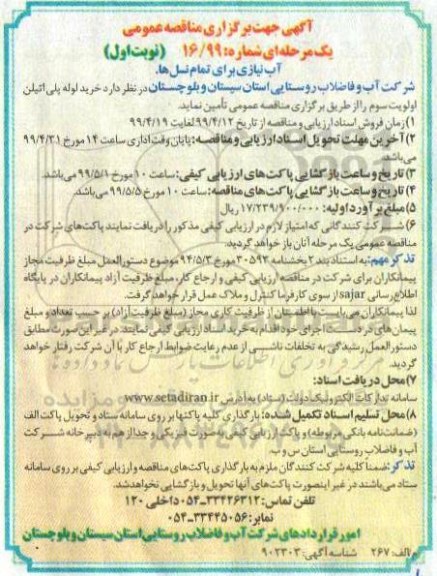 آگهی جهت برگزاری مناقصه عمومی
یک مرحله‌ای شماره: ۱۶/۹۹ (نوبت اول)
آب نیازی برای تمام نسل‌ها.
شرکت آب و فاضلاب روستایی استان سیستان و بلوچستان در نظر دارد خرید لوله پلی اتیلن
اولویت سوم را از طریق برگزاری مناقصه عمومی تأمین نماید.
۱) زمان فروش اسناد ارزیابی و مناقصه از تاریخ ۹۹/۴/۱۲ لغایت ۹۹/۴/۱۹
۲) آخرین مهلت تحویل اسناد ارزیابی و مناقصه: پایان وقت اداری ساعت ۱۴ مورخ ۹۹/۴/۳۱
می‌باشد.
۳) تاریخ و ساعت بازگشایی پاکت‌های ارزیابی کیفی: ساعت ۱۰ مورخ ۹۹/۵/۱ می‌باشد.
۴) تاریخ و ساعت بازگشایی پاکت‌های مناقصه: ساعت ۱۰ مورخ ۹۹/۵/۵ می‌باشد.
۵) مبلغ برآورد اولیه: ۱۷/۲۳۹/۹۰۰/۰۰۰ ریال
۶) شرکت کنندگانی که امتیاز لازم در ارزیابی کیفی مذکور را دریافت نمایند پاکت‌های شرکت در
مناقصه عمومی یک مرحله آنان باز خواهد گردید.
تذکر مهم: به استناد بند ۲ بخشنامه ۳۰۵۹۲ مورخ ۹۴/۵/۳ موضوع دستورالعمل مبلغ ظرفیت مجاز
پیمانکاران برای شرکت در مناقصه ارزیابی کیفی و ارجاع کار، مبلغ ظرفیت آزاد پیمانکاران در پایگاه
اطلاع رسانی sajar از سوی کارفرما کنترل و ملاک عمل قرار خواهد گرفت.
لذا پیمانکاران می‌بایست با اطمینان از ظرفیت کاری مجاز (مبلغ ظرفیت آزاد) بر حسب تعداد و مبلغ
پیمان‌های در دست اجرای خود اقدام به خرید اسناد ارزیابی کیفی نمایند. در غیر این صورت مطابق
دستورالعمل رسیدگی به تخلفات ناشیی از عدم رعایت ضوابط ارجاع کار با آن شرکت رفتار خواهد
گردید.
۷) محل دریافت اسناد:
سامانه تدارکات الکترونیک دولت (ستاد) به آدرس www.setadiran.ir
۸) محل تسلیم اسناد تکمیل شده: بارگذاری کلیه پاکتها بر روی سامانه ستاد و تحویل پاکت الف
(ضمانت‌نامه بانکی مربوطه) و پاکت ارزیابی کیفی به صورت فیزیکی و جدا از هم به دبیرخانه شرکت
آب و فاضلاب روستایی استان س و ب.
تذکر: ضمنا کلیه شرکت کنندگان ملزم به بارگذاری پاکت‌های مناقصه و ارزیابی کیفی بر روی سامانه
ستاد می‌باشند در غیر اینصورت پاکت‌های آنها تحویل و بازگشایی نخواهد شد.
تلفن تماس: ۳۳۴۲۶۳۱۲-۰۵۴ داخلی ۱۲۰
نمابر: ۳۳۴۴۵۰۵۶-۰۵۴
امور قراردادهای شرکت آب و فاضلاب روستایی استان سیستان و بلوچستان
م الف: ۲۶۷ شناسه آگهی: ۹۰۲۳۰۳